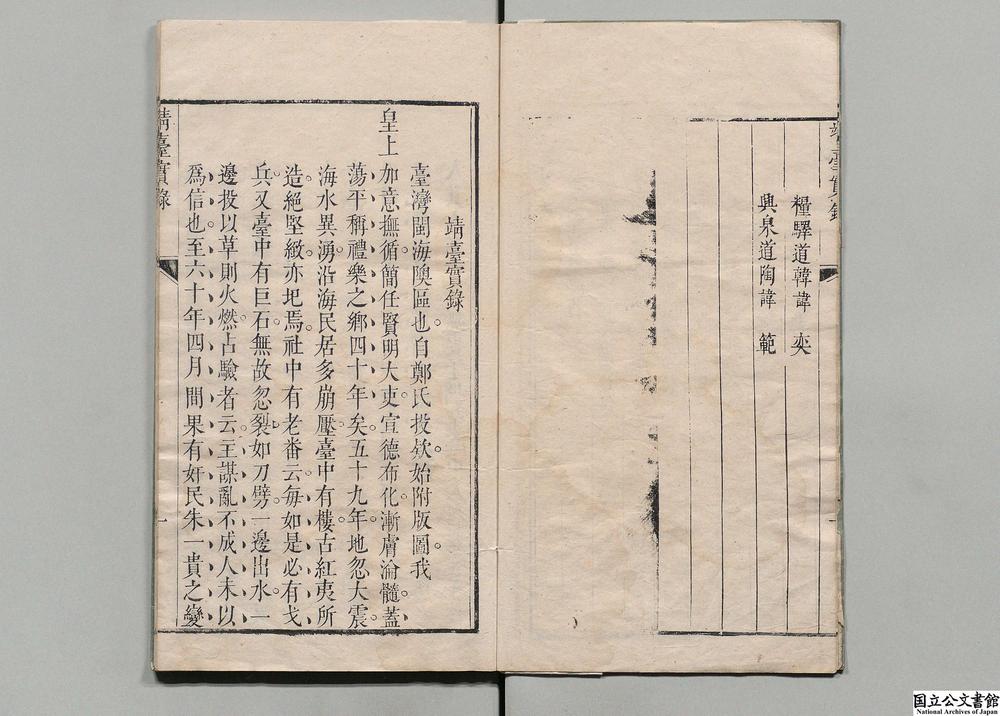 靖臺實錄
糧驛道韓諱　奕
興泉道陶諱　範
靖臺實錄
臺灣閩海隩區也自鄭氏投欵始附版圖我
皇上加意撫循簡任賢明大吏宣德布化漸膚淪髓蓋
蕩平稱禮樂之鄉四十年矣五十九年地忽大震
海水異湧沿海民居多崩壓臺中有樓古紅夷所
造絕堅緻亦圯焉社中有老番云每如是必有戈
兵又臺中有巨石無故忽裂如刀劈一邊出水一
邊投以草則火燃占驗者云主謀亂不成人未以
爲信也至六十年四月間果有奸民朱一貴之變
靖臺實錄
一
国立公文書館
National Archives of Japan